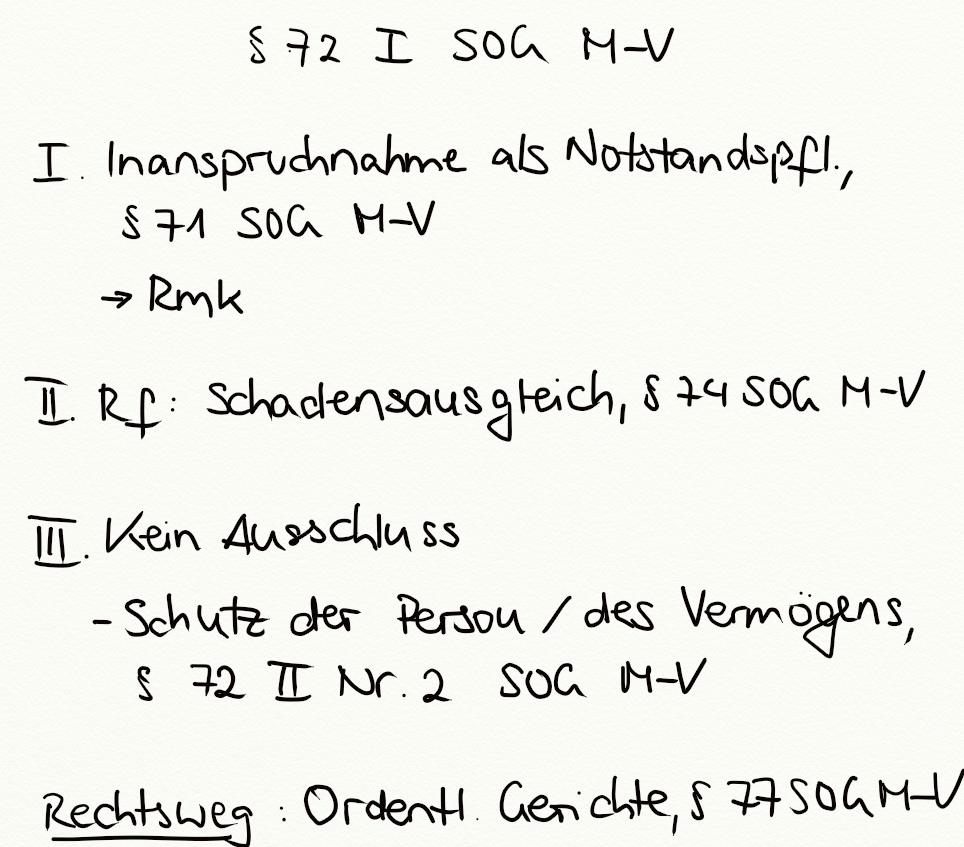 § 72 I SOG M-V
I. Inanspruchnahme als Notstandspfl.,
§ 71 SOG M-V
→ Rmk
II. Rf: Schadensausgleich, § 74 SOG M-V
III. Kein Ausschluss
- Schutz der Person / des Vermögens,
§ 72 II Nr. 2 SOG M-V
Rechtsweg: Ordentl. Gerichte, § 77 SOG M-V